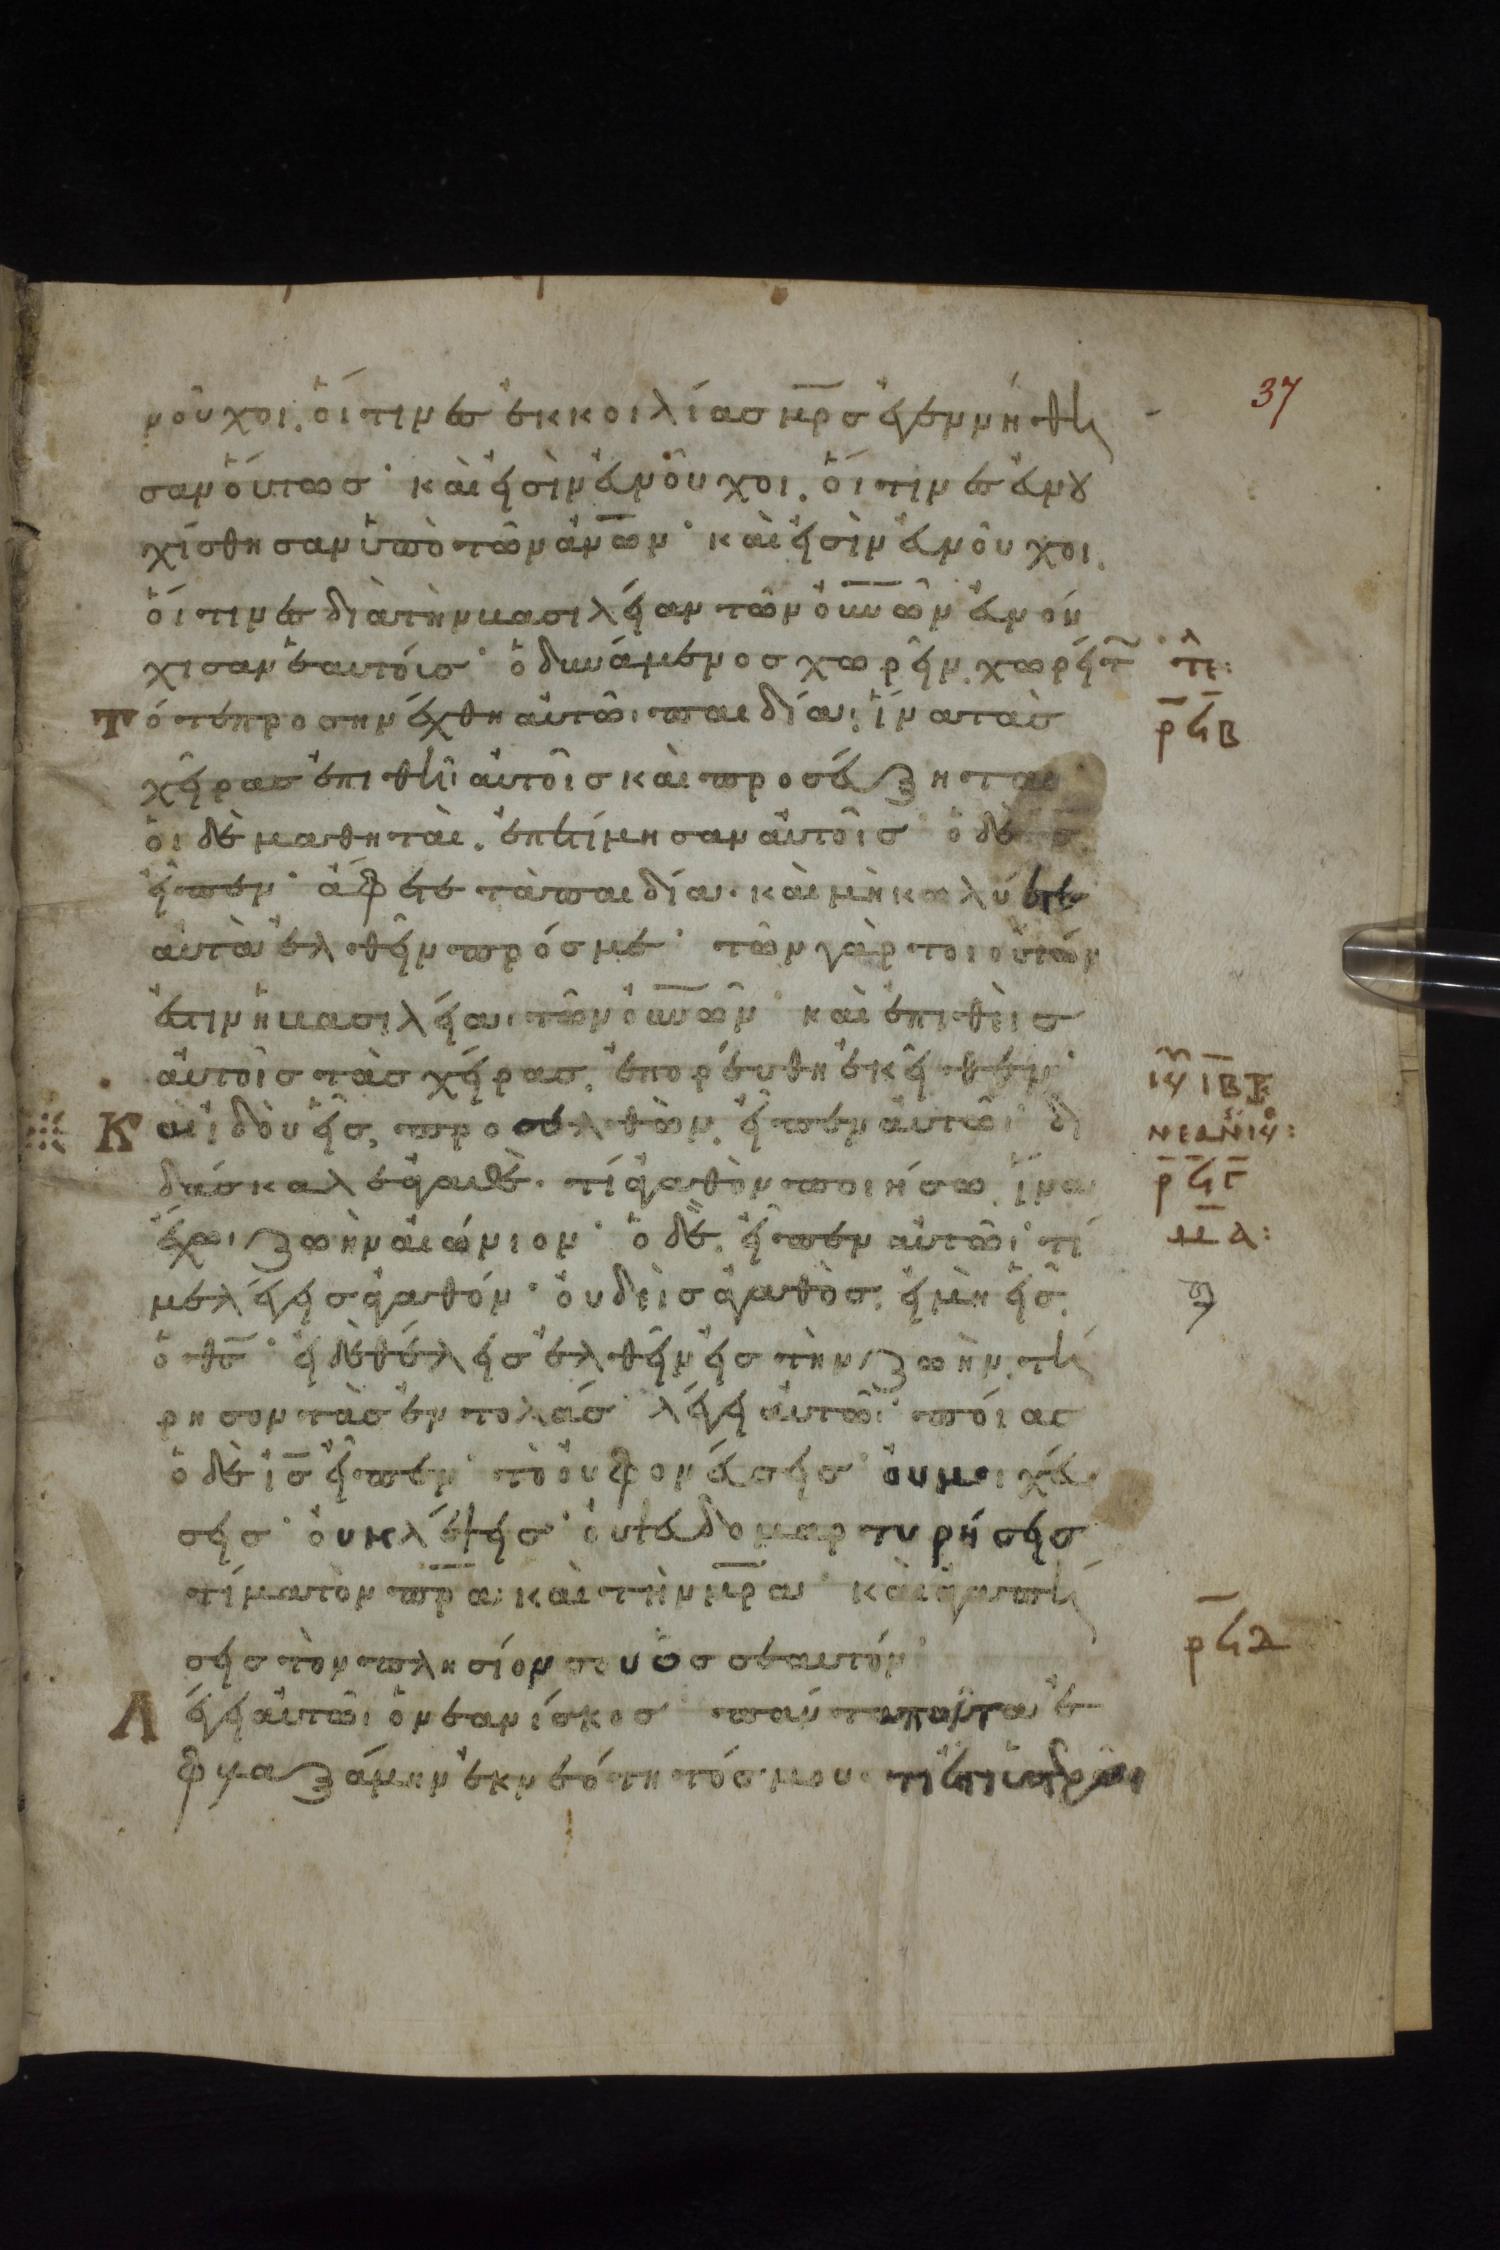 37
νοῦχοι. οἵτινες ἐκ κοιλίας μρ̅ς ἐγεννήθη
σαν οὕτως· καὶ εἰσὶν εὐνοῦχοι. οἵτινες εὐνου
χίσθησαν ὑπὸ τῶν ἀν̅ων· καὶ εἰσὶν εὐνοῦχοι.
οἵτινες διὰ τὴν βασιλείαν τῶν οὐν̅ῶν εὐνού
χισαν ἑαυτούς· ὁ δυνάμενος χωρεῖν, χωρείτ̅ τε̅:
Τότε προσηνέχθη αὐτῶι παιδία, ἵνα τὰς
ρϟβ
χεῖρας ἐπιθῆι αὐτοῖς καὶ προσεύξηται
οἱ δὲ μαθηταὶ. ἐπετίμησαν αὐτοῖς· ὁ δὲ ι̅ς
εἶπεν· ἄφετε τὰ παιδία· καὶ μὴ κωλύετε
αὐτὰ ἐλθεῖν πρός με· τῶν γὰρ τοιούτων
ἐστὶν ἡ βασιλεία τῶν οὐν̅ῶν· καὶ ἐπιθεὶς
αὐτοῖς τὰς χεῖρας, ἐπορεύθη ἐκεῖθεν·
Καὶ ἰδοὺ εἷς, προσελθὼν, εἶπεν αὐτῶι· δι
δάσκαλε ἀγαθὲ· τί ἀγαθὸν ποιήσω, ἵνα
ρϟγ
ἔχω ζωὴν αἰώνιον· ὁ δὲ, εἶπεν αὐτῶι· τί
με λέγεις ἀγαθόν· οὐδεὶς ἀγαθὸς, εἰ μὴ εἷς,
ὁ θ̅ς· εἰ δὲ θέλεις ἐλθεῖν εἰς τὴν ζωὴν, τή
ρησον τὰς ἐντολάς· λέγει αὐτῶι· ποίας
ὁ δὲ ι̅ς εἶπεν· τὸ οὐ φονεύσεις· οὐ μοιχεύ
σεις· οὐ κλέψεις· οὐ ψευδομαρτυρήσεις
τίμα τὸν πρ̅α· καὶ τὴν μρ̅α· καὶ ἀγαπή
ρϟδ
σεις τὸν πλησίον σου ὡς σεαυτόν·
Λέγει αὐτῶι ὁ νεανίσκος· πάντα ταῦτα ἐ
φυλαξάμην ἐκ νεότητός μου· τί ἔτι ὑστερῶ